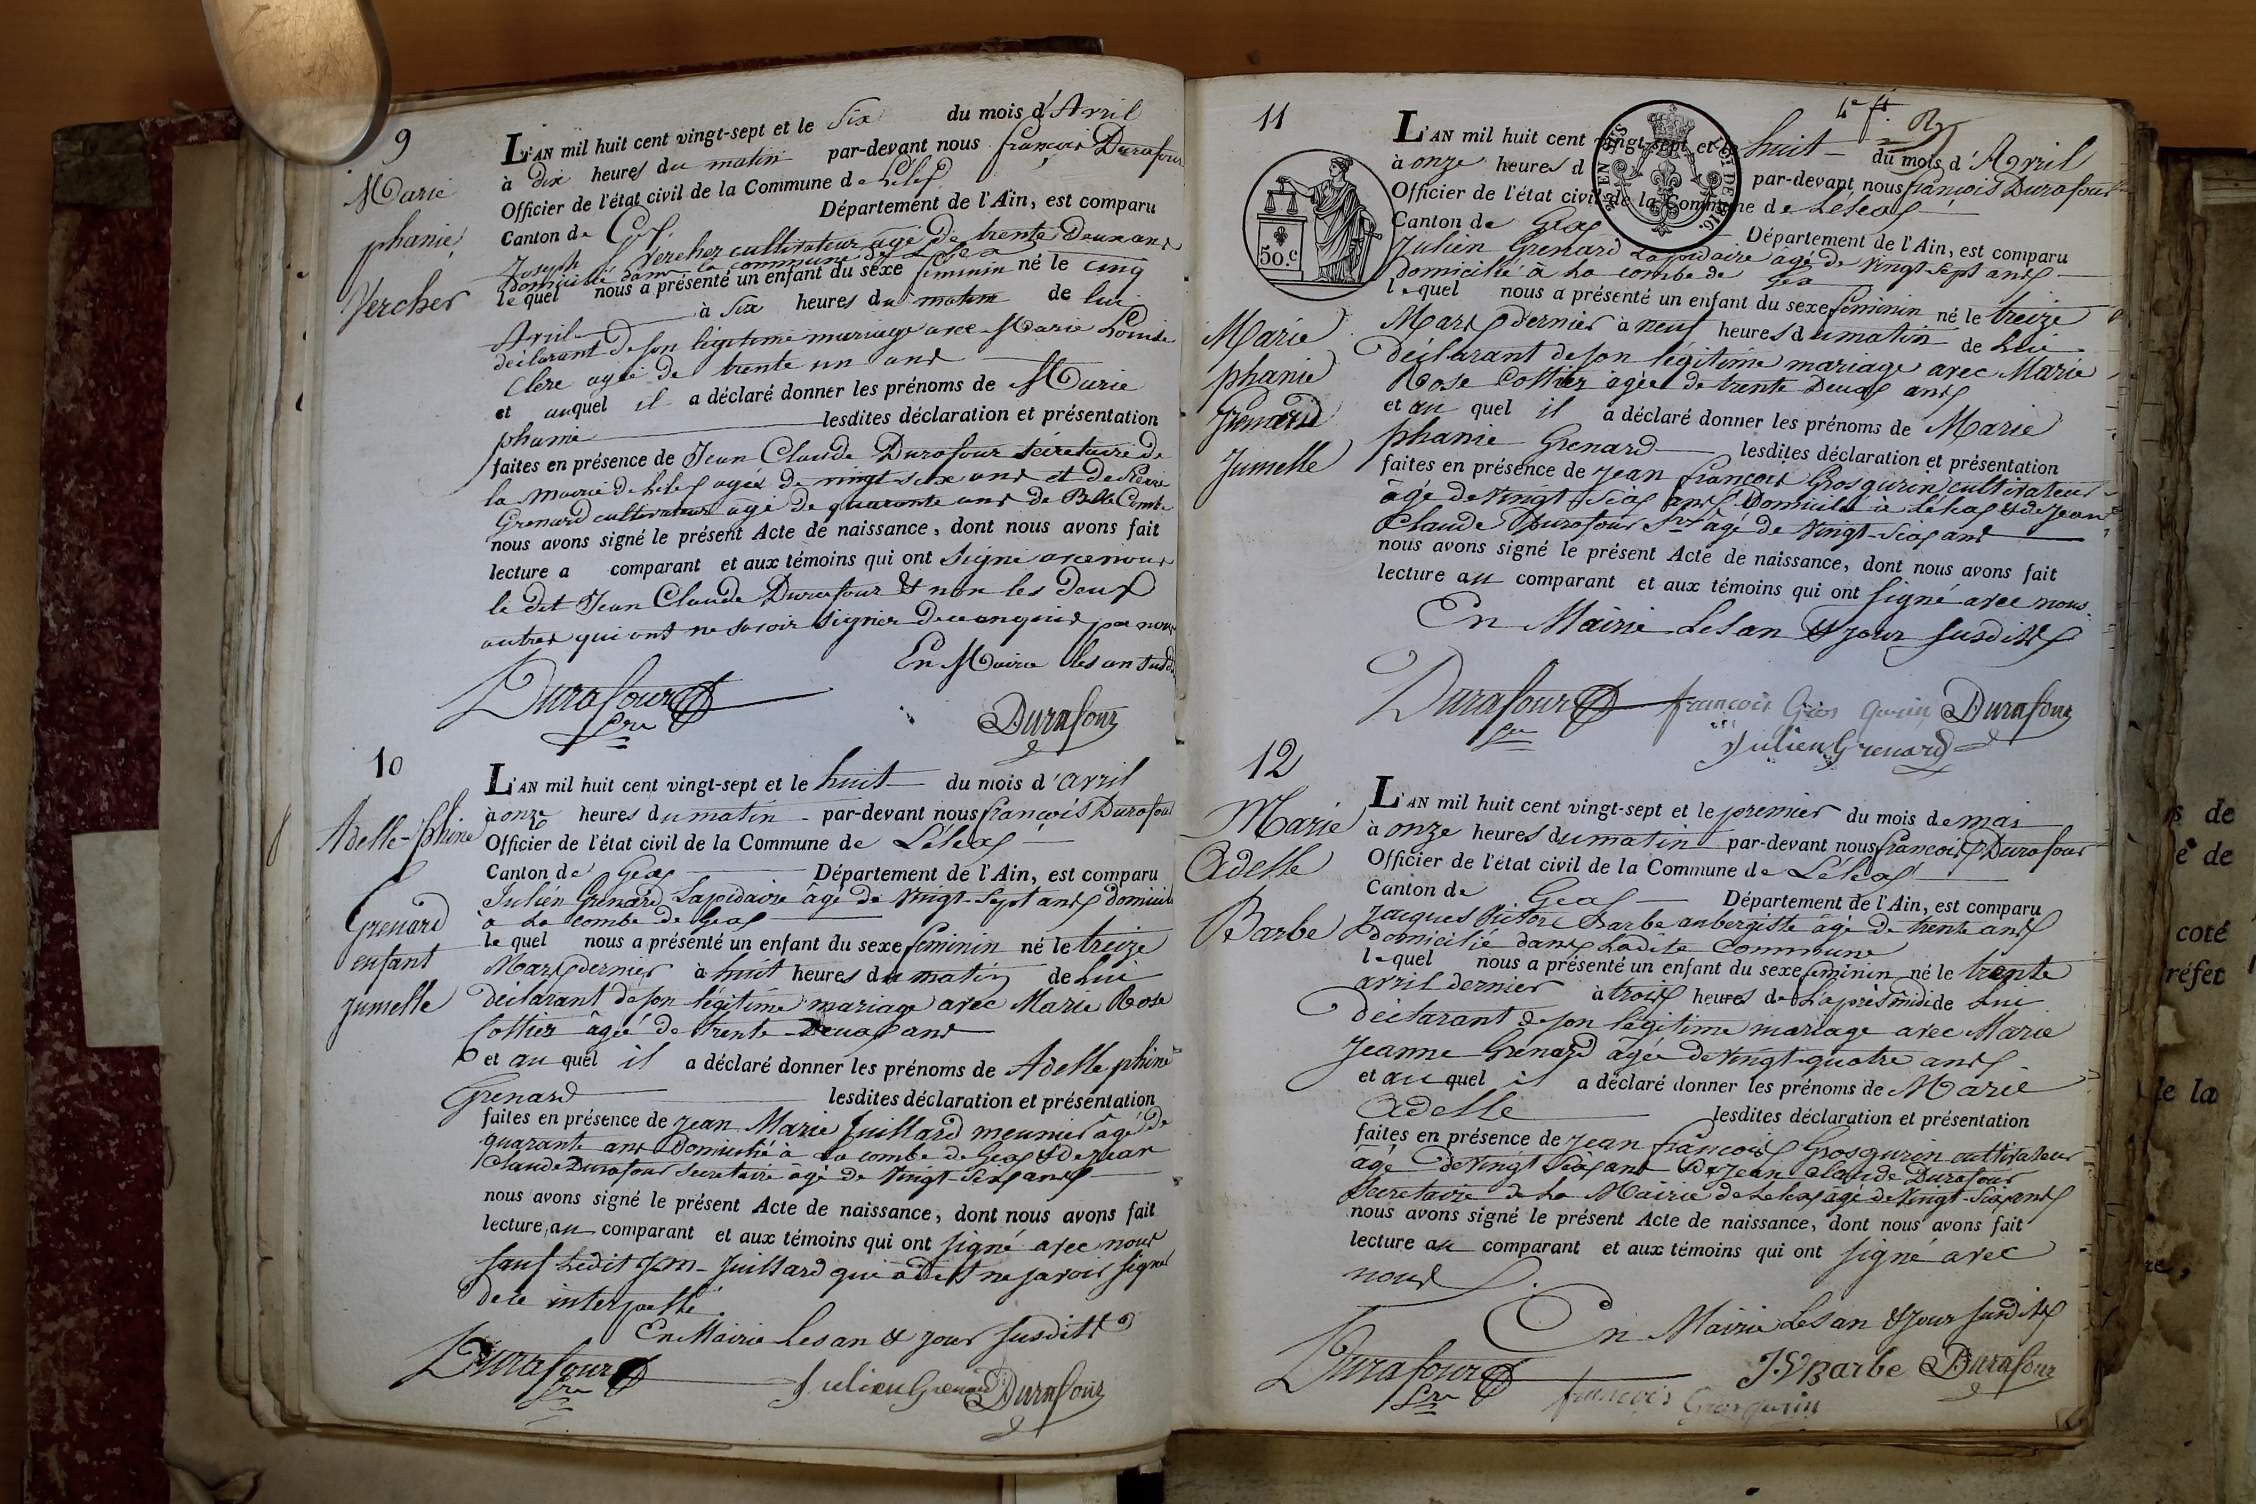 9
Marie
phanie
Vercher
L'AN mil huit cent vingt-sept et le Six du mois d'Avril
à dix heures du matin par-devant nous françois Durafour
Officier de l'état civil de la Commune de Lélex
Canton de Gex Département de l'Ain, est comparu
Joseph Vercher cultivateur âgé de trente deux ans
domicilié dans la commune de Lélex
le quel nous a présenté un enfant du sexe feminin né le cinq
Avril à six heures du matin de lui
déclarant de son légitime mariage avec Marie Louise
Clere agée de trente un ans
et auquel il a déclaré donner les prénoms de Marie
phanie lesdites déclaration et présentation
faites en présence de Jean Claude Durafour Sécretaire de
la Mairie de Lelex agé de vingt six ans et de Pierre
Grenard cultivateur agé de quarante ans de Belle Combe
nous avons signé le présent Acte de naissance, dont nous avons fait
lecture a comparant et aux témoins qui ont Signé avec nous
le dit Jean Claude Durafour & non les deux
autres qui ont ne savoir signer de ce enquis par nous
En Mairie les an susd
Durafour
Sre
Durafour
10
Adelle-phine
Grenard
enfant
jumelle
L'AN mil huit cent vingt-sept et le huit du mois d'avril
à onze heures du matin par-devant nous françois Durafour
Officier de l'état civil de la Commune de Lélex
Canton de Gex Département de l'Ain, est comparu
Julien Grenard Lapidaire âgé de Vingt-Sept ans domicilié
à La combe de Gex
le quel nous a présenté un enfant du sexe feminin né le treize
Mars dernier à huit heures du matin de Lui
déclarant de son légitime mariage avec Marie Rose
Cottier âgée de trente Deux ans
et au quel il a déclaré donner les prénoms de Adelle phine
Grenard lesdites déclaration et présentation
faites en présence de jean Marie Juillard meunier agé de
quarante ans Domicilié à La combe de Gex & de jean
Claude Durafour Secretaire âgé de Vingt-Six ans
nous avons signé le présent Acte de naissance, dont nous avons fait
lecture au comparant et aux témoins qui ont signé avec nous
sauf Ledit Jn. m. Juillard qui a dit ne savoir signé
de ce interpellé.
En Mairie Les an & jour susditts
Durafour
Sre
Julien Grenard Durafour
11
4e ft
50.c
Marie
phanie
Grenard
Jumelle
L'AN mil huit cent vingt-sept et le huit du mois d'Avril
à onze heures d par-devant nous françois Durafour
Officier de l'état civil de la Commune de Lelex
Canton de Gex Département de l'Ain, est comparu
Julien Grenard Lapidaire agé de vingt-sept ans
Domicilié à La combe de Gex
le quel nous a présenté un enfant du sexe feminin né le treize
Mars dernier à neuf heures du matin de Lui
Déclarant de son légitime mariage avec Marie
Rose Cottier âgée de trente Deux ans
et au quel il a déclaré donner les prénoms de Marie
phanie Grenard lesdites déclaration et présentation
faites en présence de jean françois Grosgurin cultivateur
âgé de Vingt-Six ans Domicilié à Lélex & de Jean
Claude Durafour Sre âgé de Vingt-Six ans
nous avons signé le présent Acte de naissance, dont nous avons fait
lecture au comparant et aux témoins qui ont signé avec nous.
En Mairie Les an & jour susdits
Durafour françois Gros gurin Durafour
Sre
Julien Grenard
12
Marie
Adelle
Barbe
L'AN mil huit cent vingt-sept et le premier du mois de mai
à onze heures du matin par-devant nous françois Durafour
Officier de l'état civil de la Commune de Lélex
Canton de Gex Département de l'Ain, est comparu
Jacques Victor Barbe aubergiste âgé de trente ans
domicilié dans Ladite Commune
le quel nous a présenté un enfant du sexe feminin né le trente
avril dernier à trois heures de L'après midi de Lui
déclarant de son légitime mariage avec Marie
Jeanne Grenard âgée de Vingt-quatre ans
et au quel il a déclaré donner les prénoms de Marie
Adelle lesdites déclaration et présentation
faites en présence de jean françois Grosgurin cultivateur
âgé de Vingt Six ans & de Jean Claude Durafour
Secretaire de La Mairie de Lelex âgé de Vingt-Six ans
nous avons signé le présent Acte de naissance, dont nous avons fait
lecture au comparant et aux témoins qui ont signé avec
nous
En Mairie Les an & jour susdits
Durafour J.V Barbe Durafour
Sre
françois Grosgurin
s de
e de
coté
réfet
de la